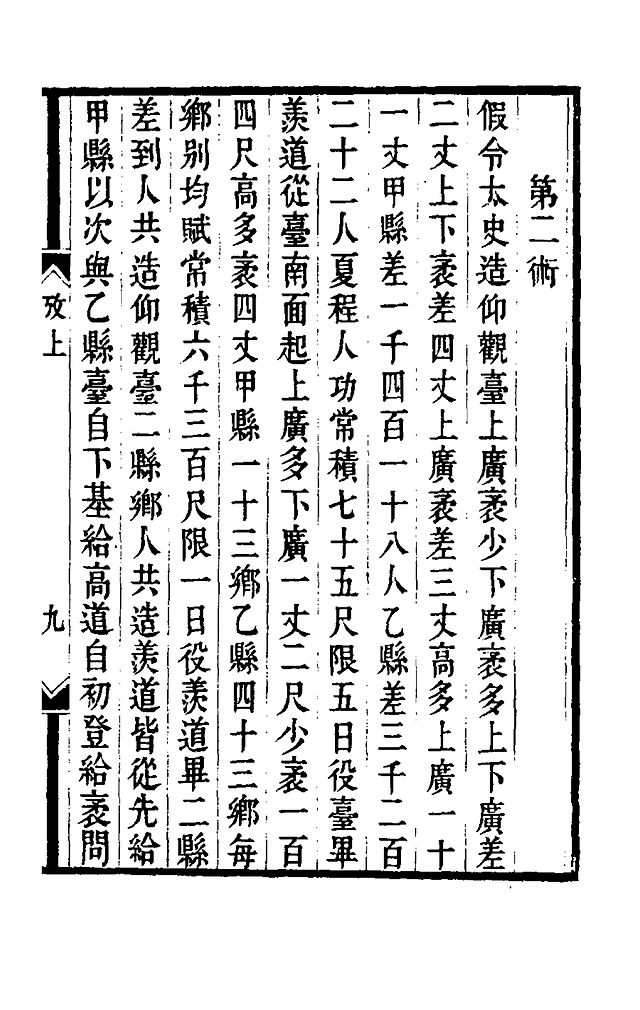 第二術
假令太史造仰觀臺上廣袤少下廣袤多上下廣差
二丈上下袤差四丈上廣袤差三丈高多上廣一十
一丈甲縣差一千四百一十八人乙縣差三千二百
二十二人夏程人功常積七十五尺限五日役臺畢
羨道從臺南面起上廣多下廣一丈二尺少袤一百
四尺高多袤四丈甲縣一十三鄉乙縣四十三鄉每
鄉别均賦常積六千三百尺限一日役羨道畢二縣
差到人共造仰觀臺二縣鄉人共造羨道皆從先給
甲縣以次與乙縣臺自下基給高道自初登給袤問
攷上
九